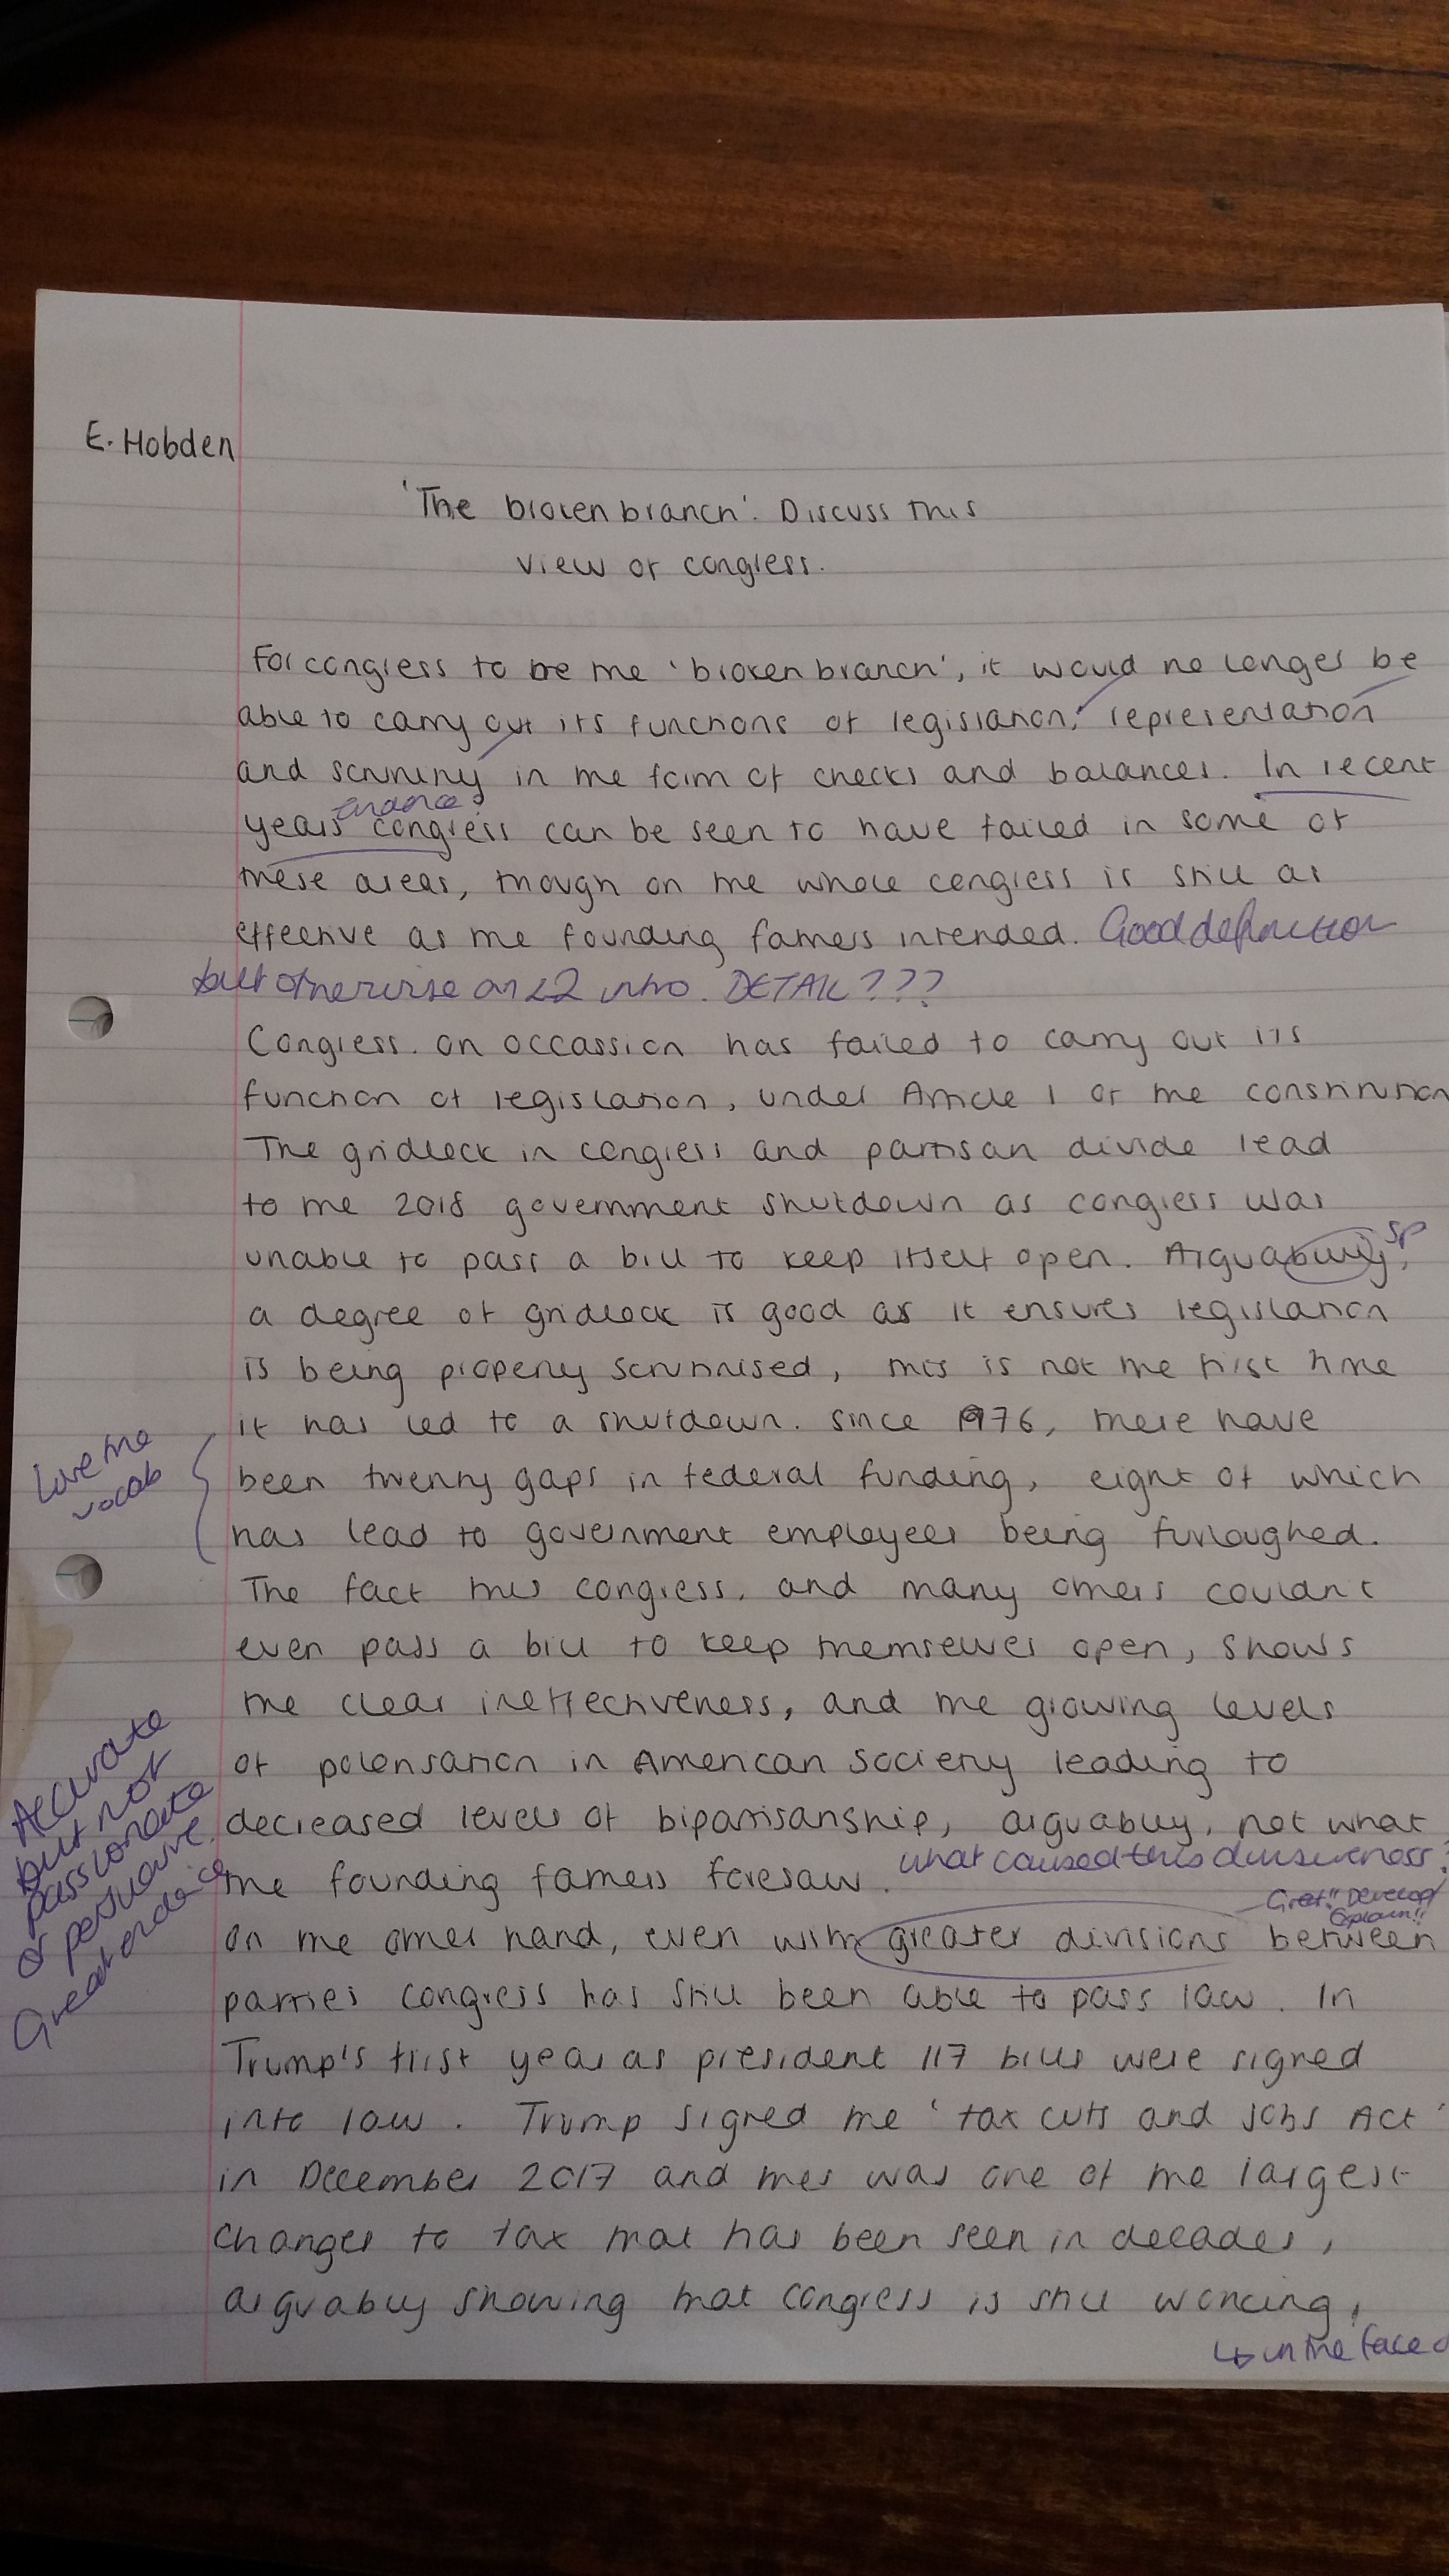 E. Hobden
'The broken branch'. Discuss this
view of congress.
For congress to be the 'broken branch', it would no longer be
able to carry out its functions of legislation, representation
and scrutiny in the form of checks and balances. In recent
evidence?
years congress can be seen to have failed in some of
these areas, though on the whole congress is still as
effective as the founding fathers intended. Good definition
but otherwise an L2 intro. DETAIL???
Congress. on occassion has failed to carry out its
function of legislation, under Article 1 of the constitution
The gridlock in congress and partisan divide lead
to the 2018 government shutdown as congress was
sp
unable to pass a bill to keep itself open. Arguabully,
a degree of gridlock is good as it ensures legislation
is being properly scrutinised, this is not the first time
it has led to a shutdown. Since 1976, there have
Love the
vocab
been twenty gaps in federal funding, eight of which
has lead to government employees being furloughed.
The fact this congress, and many others couldn't
even pass a bill to keep themselves open, shows
the clear ineffectiveness, and the growing levels
of polerisation in American society leading to
Accurate
but not
passionate
or persuasive.
Great evidence
decreased levels of bipartisanship, arguably, not what
the founding fathers foresaw. what caused this divisiveness?
Great!! Develop
Explain!!
On the other hand, even with greater divisions between
parties congress has still been able to pass law. In
Trump's first year as president 117 bills were signed
into law. Trump signed the 'tax cuts and jobs Act'
in December 2017 and this was one of the largest
changes to tax that has been seen in decades,
arguably showing that congress is still working,
↳ in the face o